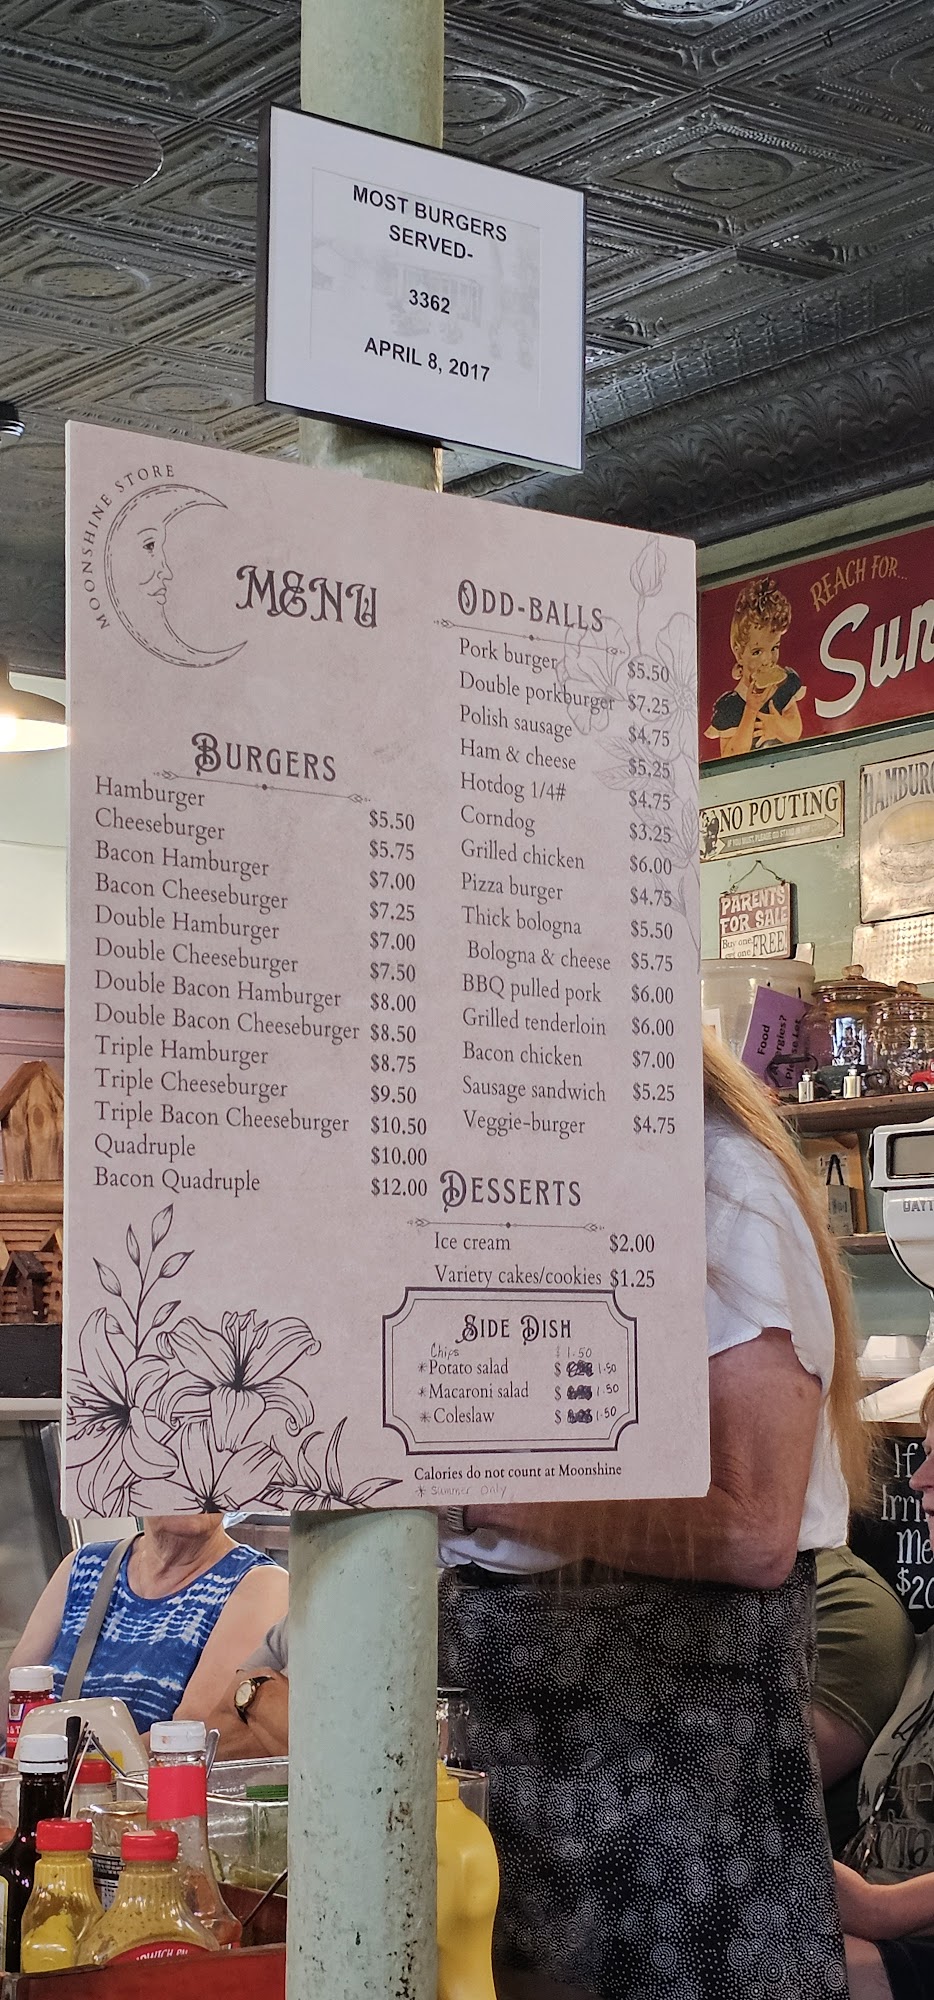 MOST BURGERS
SERVED-
3362
APRIL 8, 2017
MOONSHINE STORE
MENU
BURGERS
Hamburger $5.50
Cheeseburger $5.75
Bacon Hamburger $7.00
Bacon Cheeseburger $7.25
Double Hamburger $7.00
Double Cheeseburger $7.50
Double Bacon Hamburger $8.00
Double Bacon Cheeseburger $8.50
Triple Hamburger $8.75
Triple Cheeseburger $9.50
Triple Bacon Cheeseburger $10.50
Quadruple $10.00
Bacon Quadruple $12.00
ODD-BALLS
Pork burger $5.50
Double porkburger $7.25
Polish sausage $4.75
Ham & cheese $5.25
Hotdog 1/4# $4.75
Corndog $3.25
Grilled chicken $6.00
Pizza burger $4.75
Thick bologna $5.50
Bologna & cheese $5.75
BBQ pulled pork $6.00
Grilled tenderloin $6.00
Bacon chicken $7.00
Sausage sandwich $5.25
Veggie-burger $4.75
DESSERTS
Ice cream $2.00
Variety cakes/cookies $1.25
SIDE DISH
Chips $1.50
*Potato salad $ 1.50
*Macaroni salad $ 1.50
*Coleslaw $ 1.50
Calories do not count at Moonshine
* Summer Only
REACH FOR...
Sun
NO POUTING
HAMBURG
PARENTS
FOR SALE
Buy one
get one FREE
Food
If
Me
$20